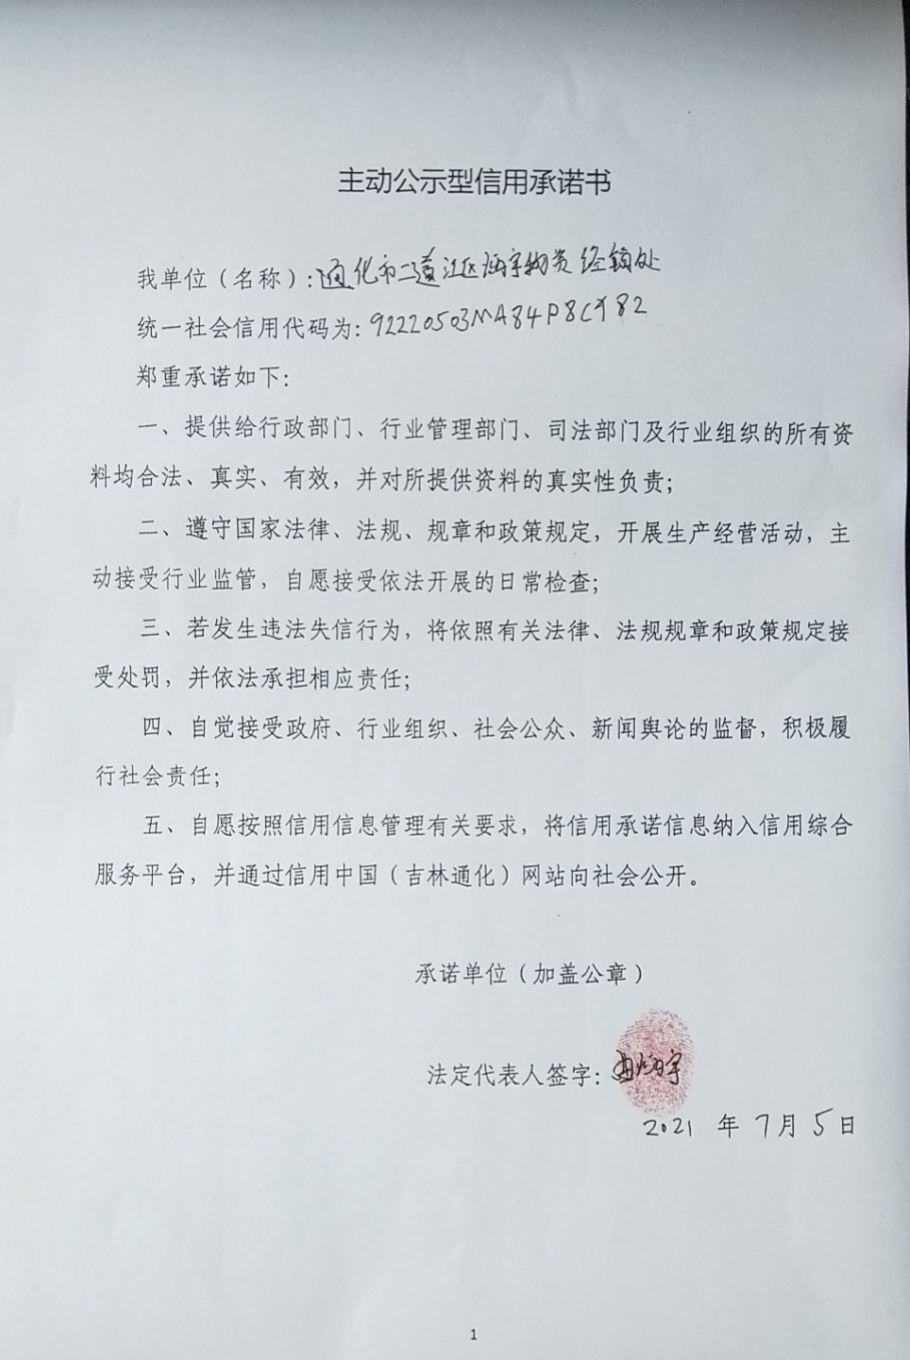 主动公示型信用承诺书
我单位（名称）：通化市二道江区炳宇物资经销处
统一社会信用代码为：92220503MA84P8CY82
郑重承诺如下：
一、提供给行政部门、行业管理部门、司法部门及行业组织的所有资
料均合法、真实、有效，并对所提供资料的真实性负责；
二、遵守国家法律、法规、规章和政策规定，开展生产经营活动，主
动接受行业监管，自愿接受依法开展的日常检查；
三、若发生违法失信行为，将依照有关法律、法规规章和政策规定接
受处罚，并依法承担相应责任；
四、自觉接受政府、行业组织、社会公众、新闻舆论的监督，积极履
行社会责任；
五、自愿按照信用信息管理有关要求，将信用承诺信息纳入信用综合
服务平台，并通过信用中国（吉林通化）网站向社会公开。
承诺单位（加盖公章）
法定代表人签字：曲炳宇
2021 年 7月 5日
1